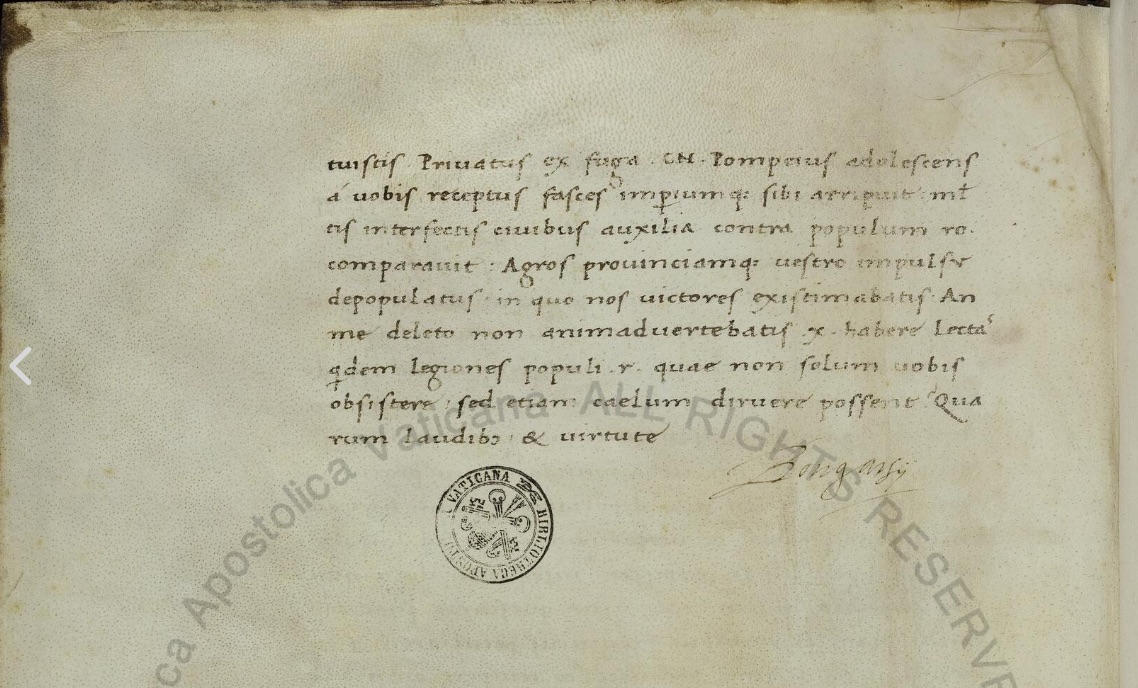 tuistis Privatus ex fuga . CN . Pompeius adolescens
á vobis receptus fasces imperiumq; sibi arripuit ml̄
tis interfectis civibus auxilia contra populum ro.
comparavit : Agros provinciamq; vestro impulsu
depopulatus in quo nos victores existimabatis An
me deleto non animadvertebatis x . habere lecta
qdem legiones populi . r . quae non solum vobis
obsistere : sed etiam caelum diruere possent Qua
rum laudib; & virtute
Bongarsij
BIBLIOTHECA APOSTOLICA VATICANA
Apostolica Vaticana ALL RIGHTS RESERVE